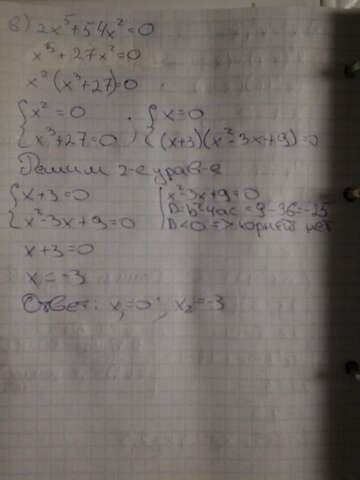 в) 2x⁵+54x²=0
x⁵+27x²=0
x²(x³+27)=0
{x²=0 ; {x=0
{x³+27=0 {(x+3)(x²-3x+9)=0
Решим 2-е урав-е
{x+3=0 {x²-3x+9=0
{x²-3x+9=0 D=b²-4ac=9-36=-25
D<0 => корней нет
x+3=0
x=-3
Ответ: x₁=0; x₂=-3